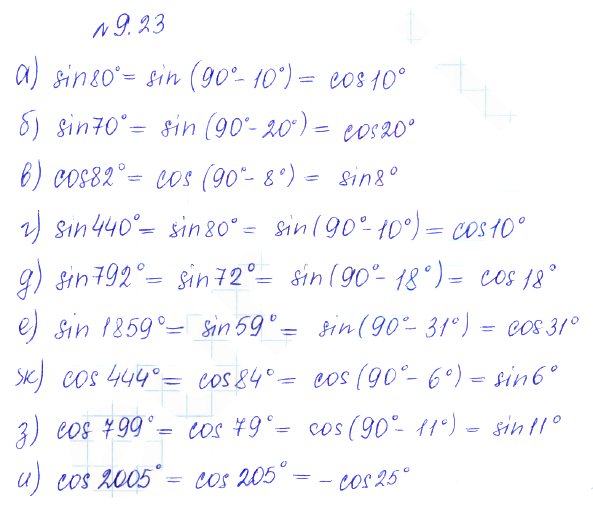 № 9.23
а) sin80° = sin (90° - 10°) = cos10°
б) sin70° = sin (90° - 20°) = cos20°
в) cos82° = cos (90° - 8°) = sin8°
г) sin440° = sin80° = sin(90° - 10°) = cos10°
д) sin792° = sin72° = sin(90° - 18°) = cos18°
е) sin 1859° = sin59° = sin(90° - 31°) = cos31°
ж) cos 444° = cos84° = cos (90° - 6°) = sin6°
з) cos 799° = cos 79° = cos(90° - 11°) = sin11°
и) cos 2005° = cos 205° = - cos25°